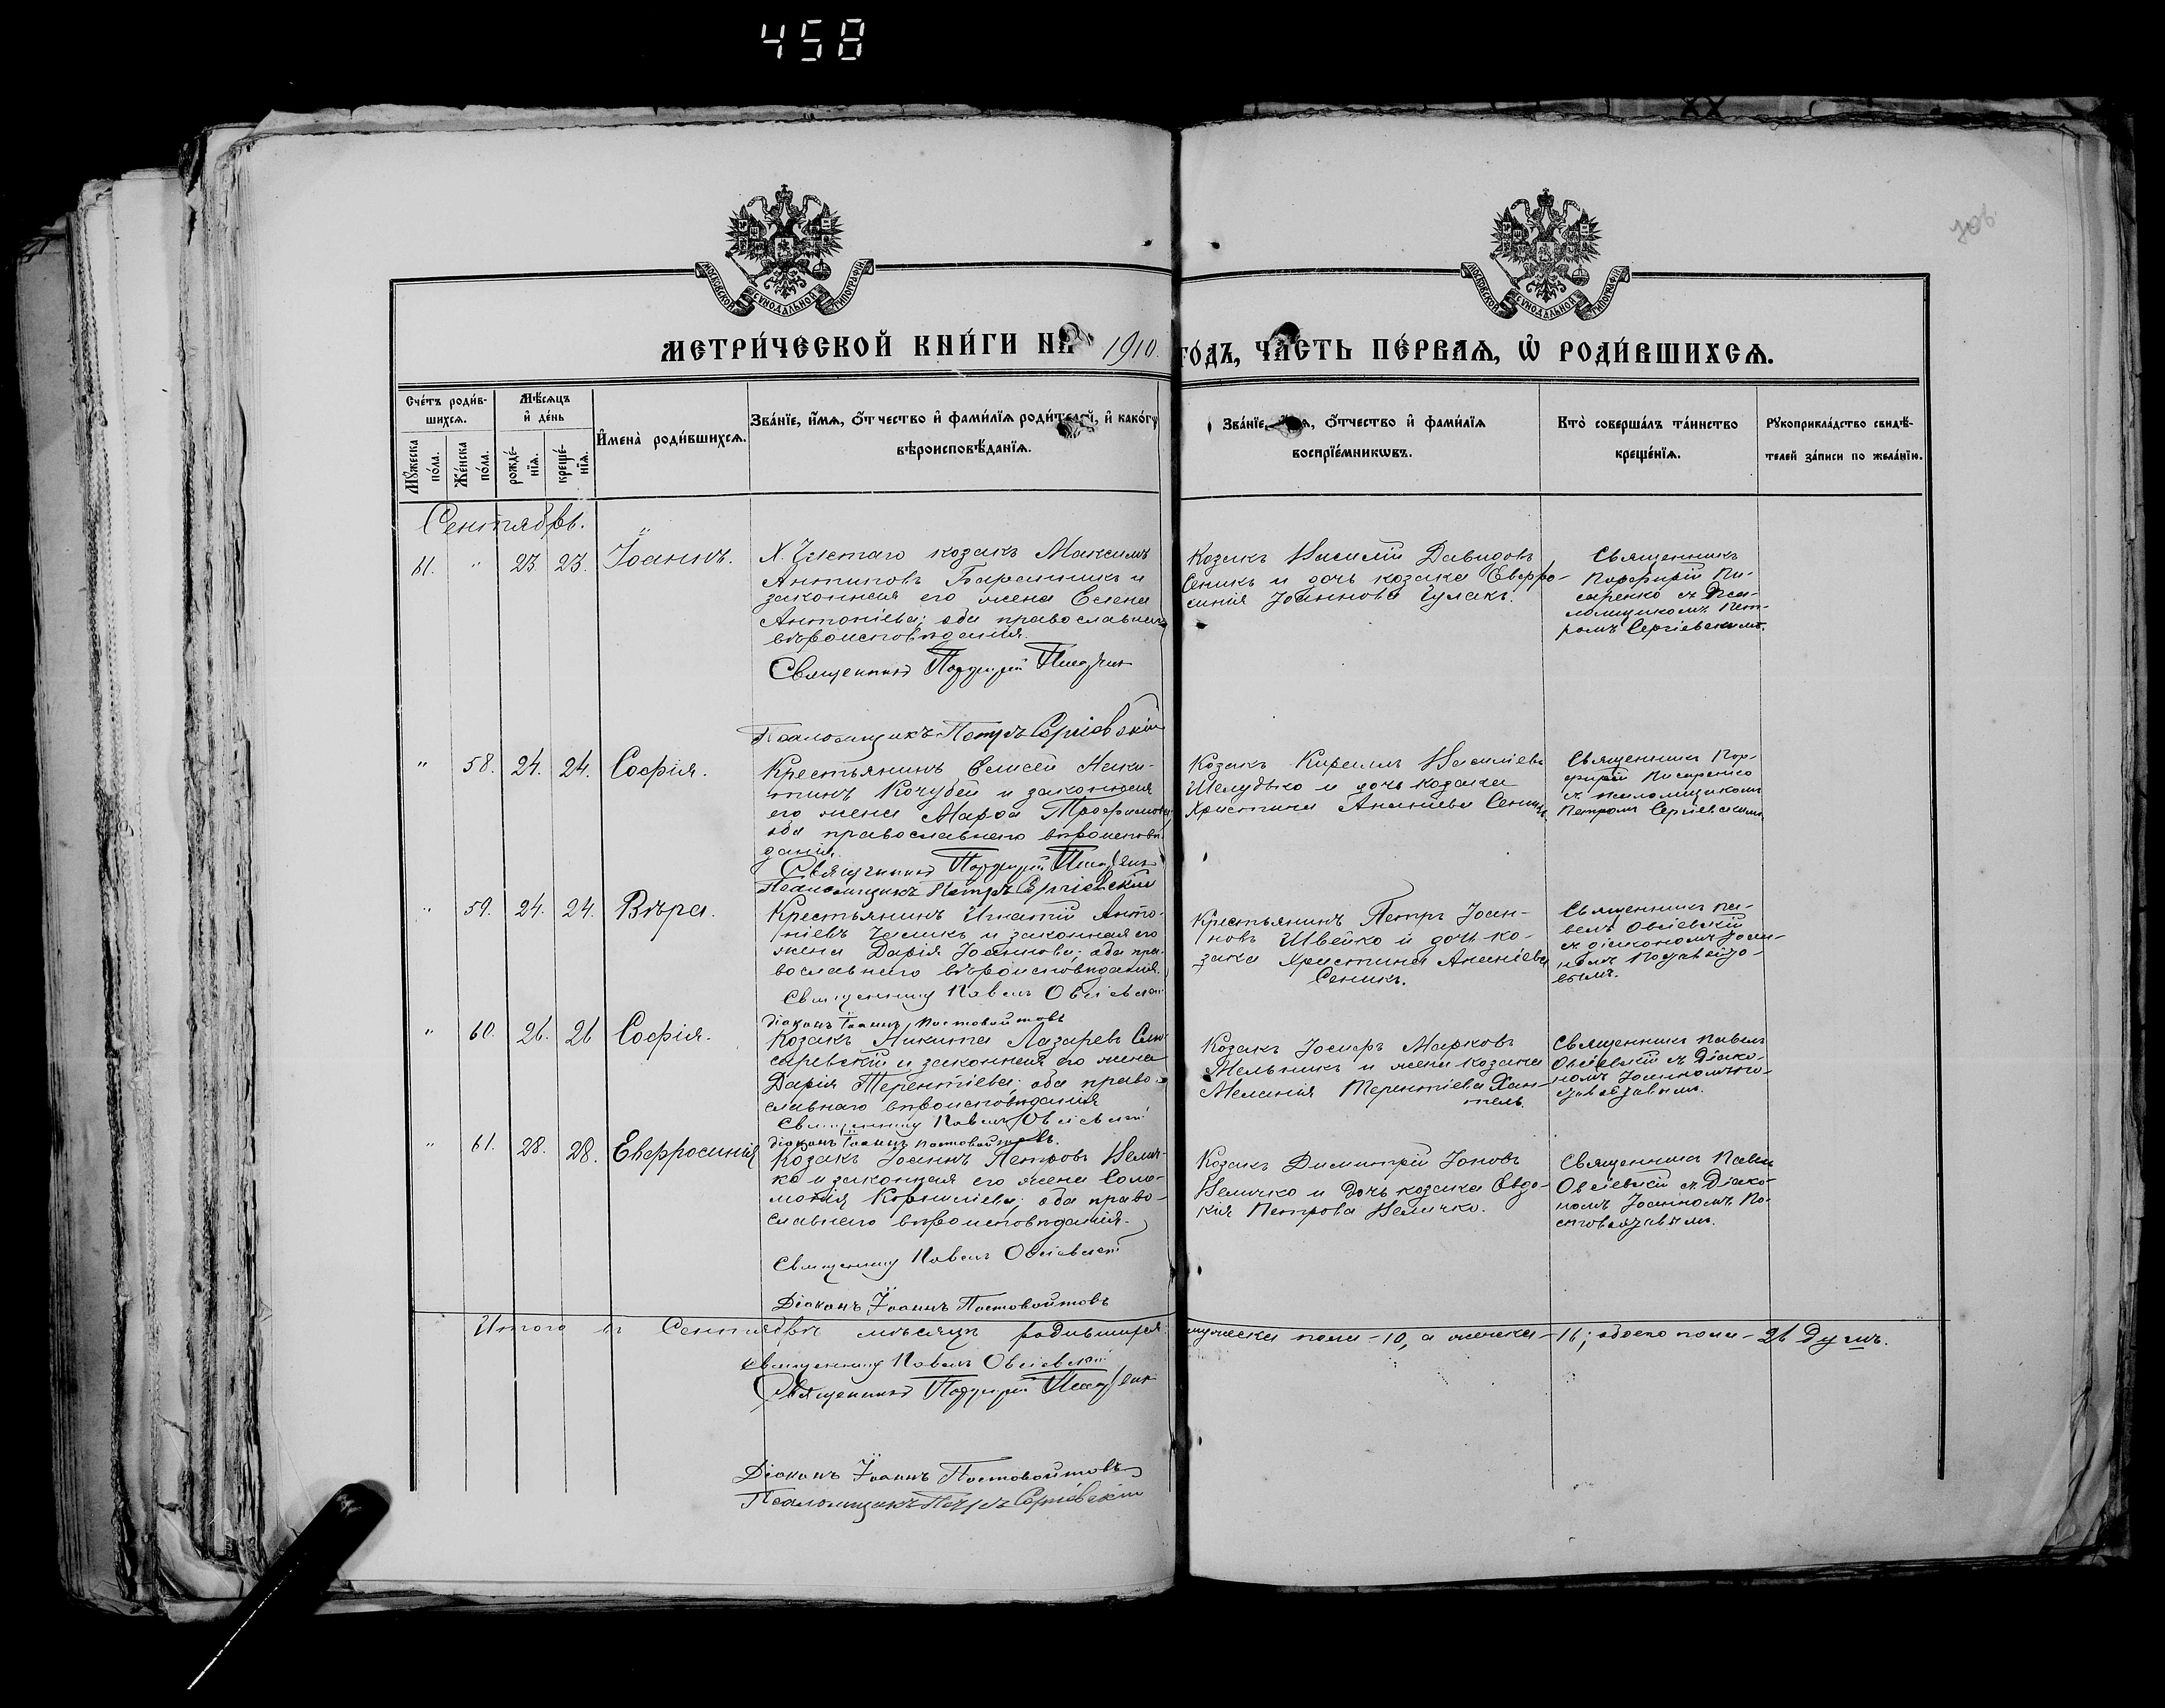 458
706.
МОСКОВСКОЙ СѴНОДАЛЬНОЙ ТИПОГРАФІИ
МОСКОВСКОЙ СѴНОДАЛЬНОЙ ТИПОГРАФІИ
МЕТРИ́ЧЕСКОЙ КНИ́ГИ НА 1910. ГО́ДЪ, ЧА́СТЬ ПЕ́РВАѦ, Ѡ҆ РОДИ́ВШИХСѦ.
Сче́тъ роди́в-
шихсѧ.
Мꙋ́жеска по́ла.
Же́нска по́ла.
Мѣ́сѧцъ
и҆ де́нь
рожде́-
нїѧ.
креще́-
нїѧ.
И҆мена̀ роди́вшихсѧ.
Зва́нїе, и҆́мѧ, ѻ҆́тчество и҆ фами́лїѧ роди́телей, и҆ како́гѡ
вѣроисповѣ́данїѧ.
Зва́нїе, и҆́мѧ, ѻ҆́тчество и҆ фами́лїѧ
воспрїе́мникѡвъ.
Кто̀ соверша́лъ та́инство
креще́нїѧ.
Рꙋкоприкла́дство свидѣ́-
телей за́писи по жела́нїю.
Сентябрь.
61. " 23. 23. Іоаннъ.
козакъ Максимъ
Антиповъ Баранникъ и
законная его жена Елена
Антоніева; оба православнаго
вѣроисповѣданія.
Священникъ Порфирій Писаренко
Псаломщикъ Петръ Сергіевскій
Козакъ Василій Давидовъ
Сеникъ и дочь козака Евфро-
синія Іоаннова Гулакъ.
Священникъ
Порфирій Пи-
саренко съ Пса-
ломщикомъ Пет-
ромъ Сергіевскимъ.
" 58. 24. 24. Софія.
Крестьянинъ Елисей Ники-
тинъ Кочубей и законная
его жена Марѳа Трофимова;
оба православнаго вѣроисповѣ-
данія.
Священникъ Порфирій Писаренко
Псаломщикъ Петръ Сергіевскій
Козакъ Кириллъ Василіевъ
Шелудько и дочь козака
Христина Ананіева Сеникъ.
Священникъ Пор-
фирій Писаренко
съ псаломщикомъ
Петромъ Сергіевскимъ.
" 59. 24. 24. Вѣра.
Крестьянинъ Игнатій Анто-
ніевъ и законная его
жена Дарія Іоаннова; оба пра-
вославнаго вѣроисповѣданія.
Священникъ Павелъ Овсіевскій
Діаконъ Іоаннъ Постовойтовъ
Крестьянинъ Петръ Іоан-
новъ Швейко и дочь ко-
зака Христина Ананіева
Сеникъ.
Священникъ Па-
велъ Овсіевскій
съ діакономъ Іоан-
номъ
" 60. 26. 26 Софія.
Козакъ Никита Лазаревъ
и законная его жена
Дарія Терентіева; оба право-
славнаго вѣроисповѣданія
Священникъ Павелъ Овсіевскій
Діаконъ Іоаннъ Постовойтовъ.
Козакъ Іосифъ Марковъ
Мельникъ и жена козака
Меланія Терентіева
Священникъ Павелъ
Овсіевскій съ Діако-
номъ Іоанномъ
" 61. 28. 28. Евфросинія
Козакъ Іоаннъ Петровъ Велич-
ко и законная его жена Соло-
монія Корниліева; оба право-
славнаго вѣроисповѣданія.
Священникъ Павелъ Овсіевскій
Діаконъ Іоаннъ Постовойтовъ
Козакъ Димитрій Іоновъ
Величко и дочь козака Евдо-
кія Петрова Величко.
Священникъ Павелъ
Овсіевскій съ Діако-
номъ Іоанномъ По-
Итого въ Сентябрѣ мѣсяцѣ родившихся: мужеска пола - 10, а женска - 16; обоего пола - 26 душъ.
Священникъ Павелъ Овсіевскій
Священникъ Порфирій Писаренко
Діаконъ Іоаннъ Постовойтовъ
Псаломщикъ Петръ Сергіевскій